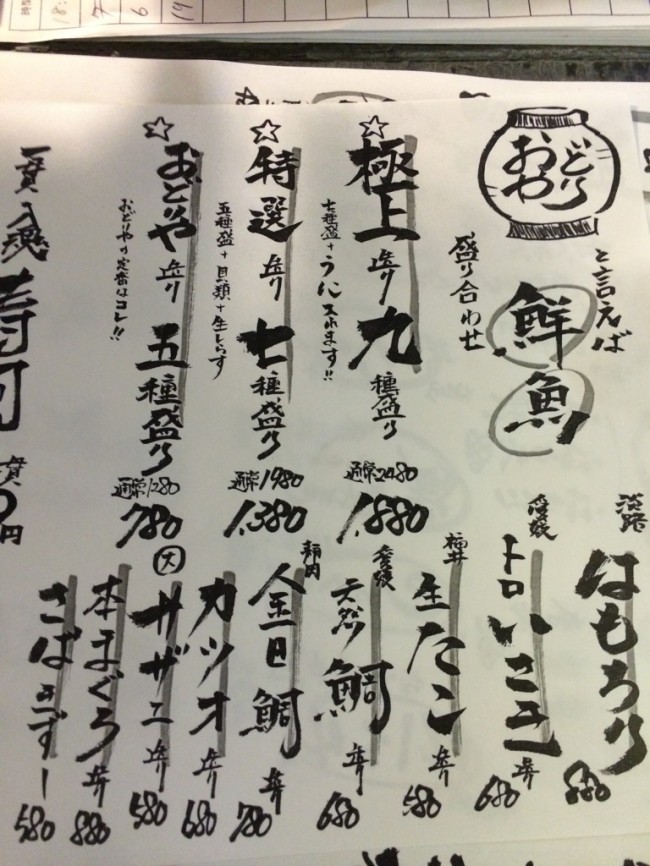 おどりや
と言えば
鮮魚
盛り合わせ
☆極上造り九種盛り
七種盛+うに入ります!!
通常2480
1,880
☆特選造り七種盛り
五種盛+貝類+生しらす
通常1980
1,380
☆おどりや造り五種盛り
おどりやの定番はコレ!!
通常1280
780
淡路
はもちり
880
愛媛
トロいさき造り
680
福井
生たこ造り
580
愛媛
天然鯛造り
680
静岡
金目鯛造り
780
カツオ造り
680
大
サザエ造り
580
本まぐろ造り
880
さばきずし
580
一貫入魂
寿司
円